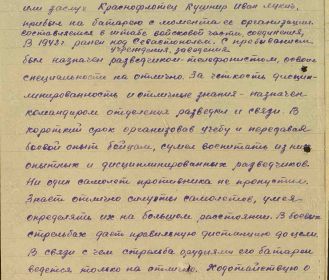 или заслуг Краснофлотец Кушнир Иван Лукич,
прибыл на батарею с момента ее организации.
составляется в штабе войсковой части, соединения,
В 1942г. ранен под Севастополем. С прибытием
учреждения, заведения
был назначен разведчиком-телефонистом, освоил
специальности на отлично. За четкость дисцип-
линированность и отличные знания - назначен
командиром отделения разведки и связи. В
короткий срок организовав учебу и передавая
боевой опыт бойцам, сумел воспитать из них
опытных и дисциплинированных разведчиков.
Ни один самолет противника не пропустил.
Знает отлично силуэты самолетов, умея
определять их на большом расстоянии. В боевых
стрельбах дает правильную дистанцию до цели.
В связи с чем стрельба орудиями его батареи
ведется только на отлично. Ходатайствую о